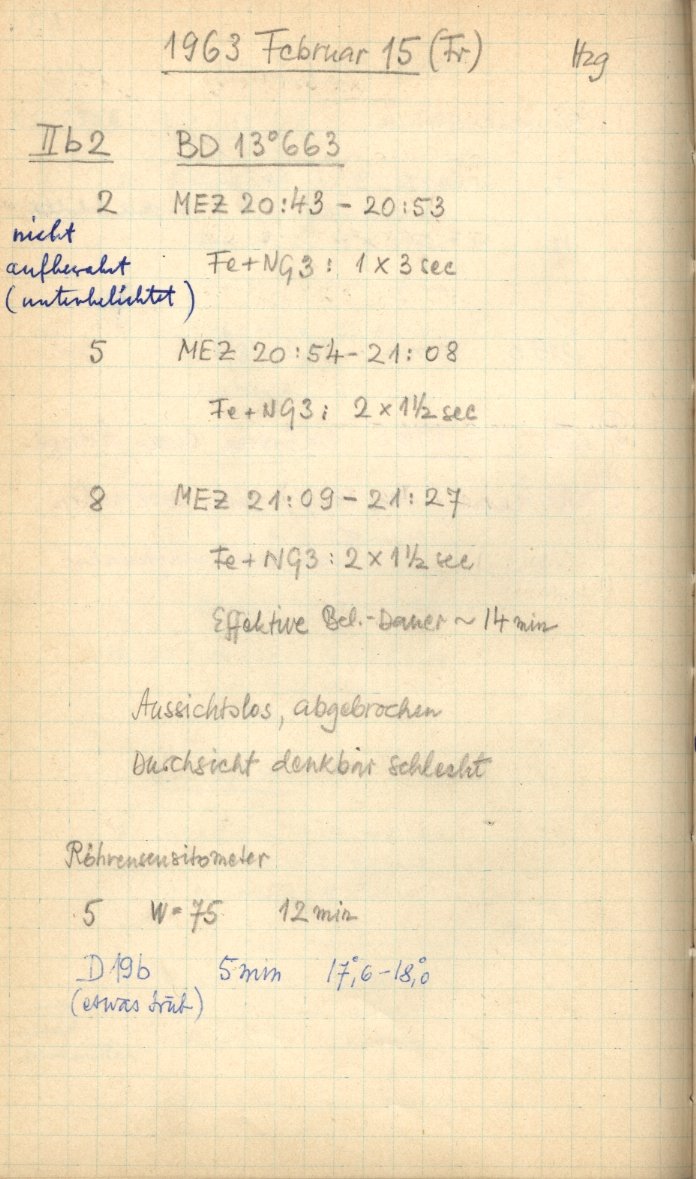 1963 Februar 15 (Fr) Hzg
IIb2 BD 13°663
2 MEZ 20:43 - 20:53
nicht
aufbewahrt
(unterbelichtet)
Fe+NG3: 1 x 3 sec
5 MEZ 20:54 - 21:08
Fe+NG3: 2 x 1½ sec
8 MEZ 21:09 - 21:27
Fe+NG3: 2 x 1½ sec
Effektive Bel.-Dauer ~ 14 min
Aussichtslos, abgebrochen
Durchsicht denkbar schlecht
Röhrensensitometer
5 W=75 12 min
D19b 5 min 17°,6-18°,0
(etwas trüb)